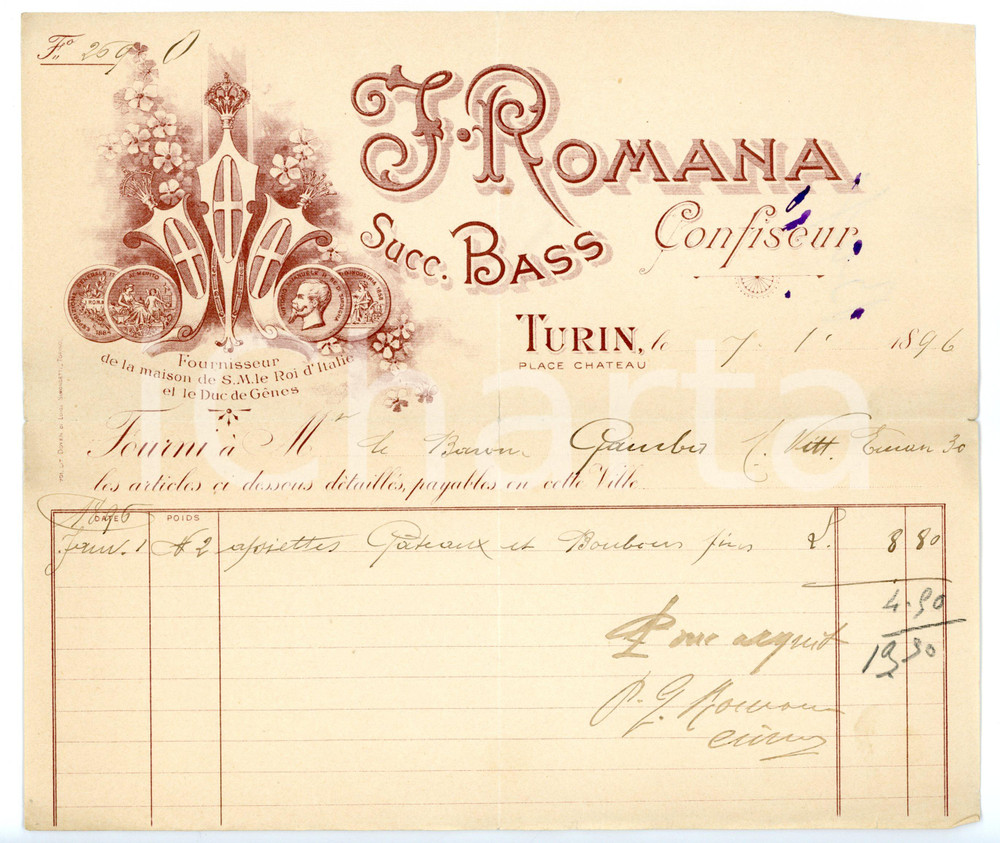 Fº 269
J. ROMANA
Succ. BASS
Confiseur
TURIN, le 7 1 1896
PLACE CHATEAU
Fournisseur
de la maison de S.M. le Roi d'Italie
et le Duc de Gênes
Fourni à Mr le Baron Gamba C. Vitt. Eman 30
les articles ci dessous détaillés, payables en cette Ville
1896
DATE POIDS
Janv. 1 N 2 assiettes Gâteaux et Bonbons fins L. 8 80
4.90
Pour acquit
P. J. Romana
iCharta